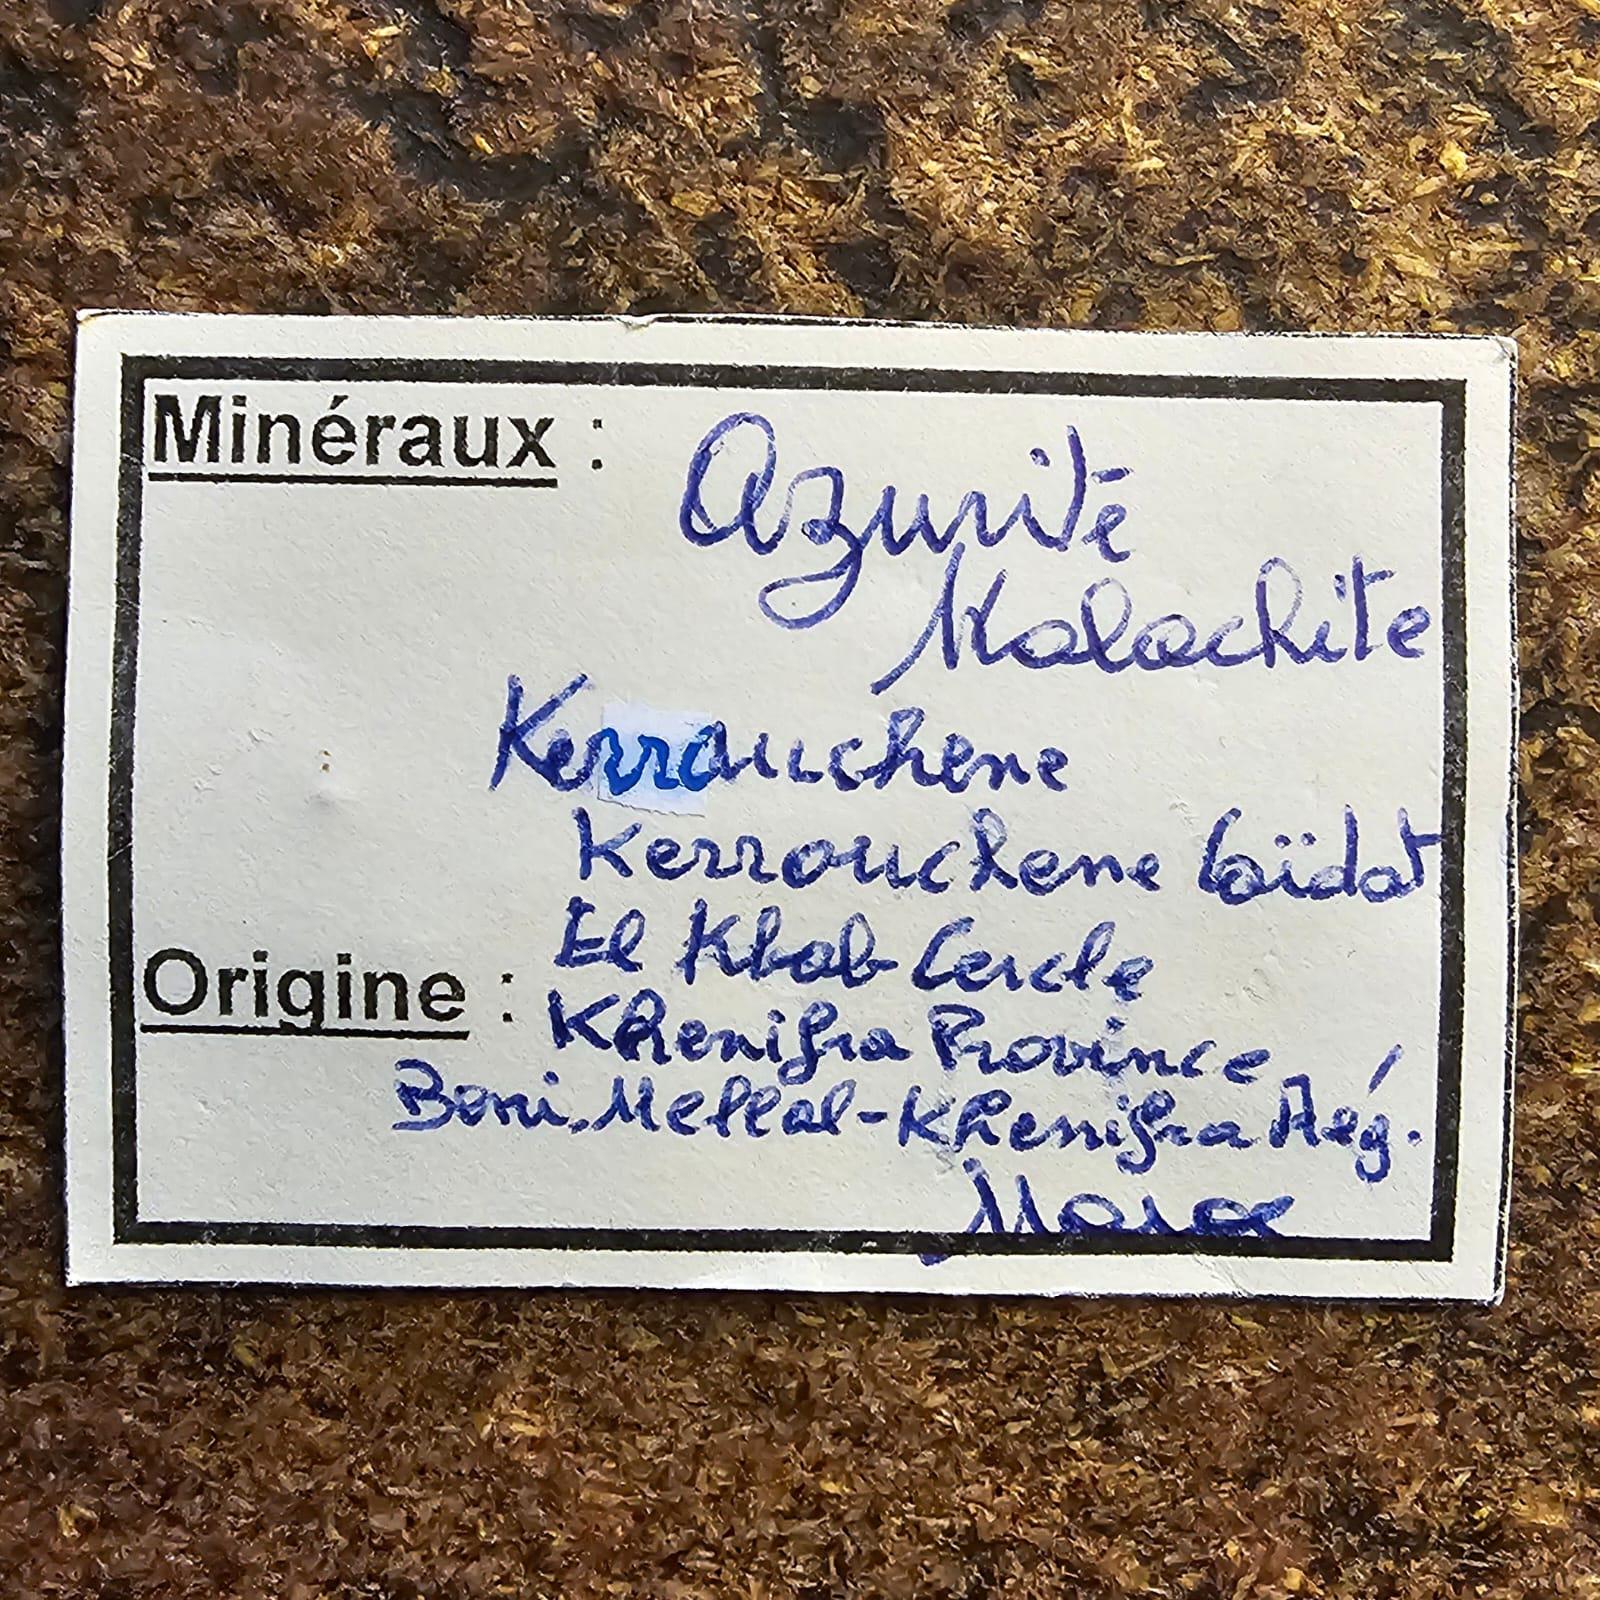 Minéraux : Azurite
Malachite
Kerrouchene
Kerrouchene Caïdat
El Kbab Cercle
Origine : Khenifra Province
Beni.Mellal-Khenifra Rég.
Maroc